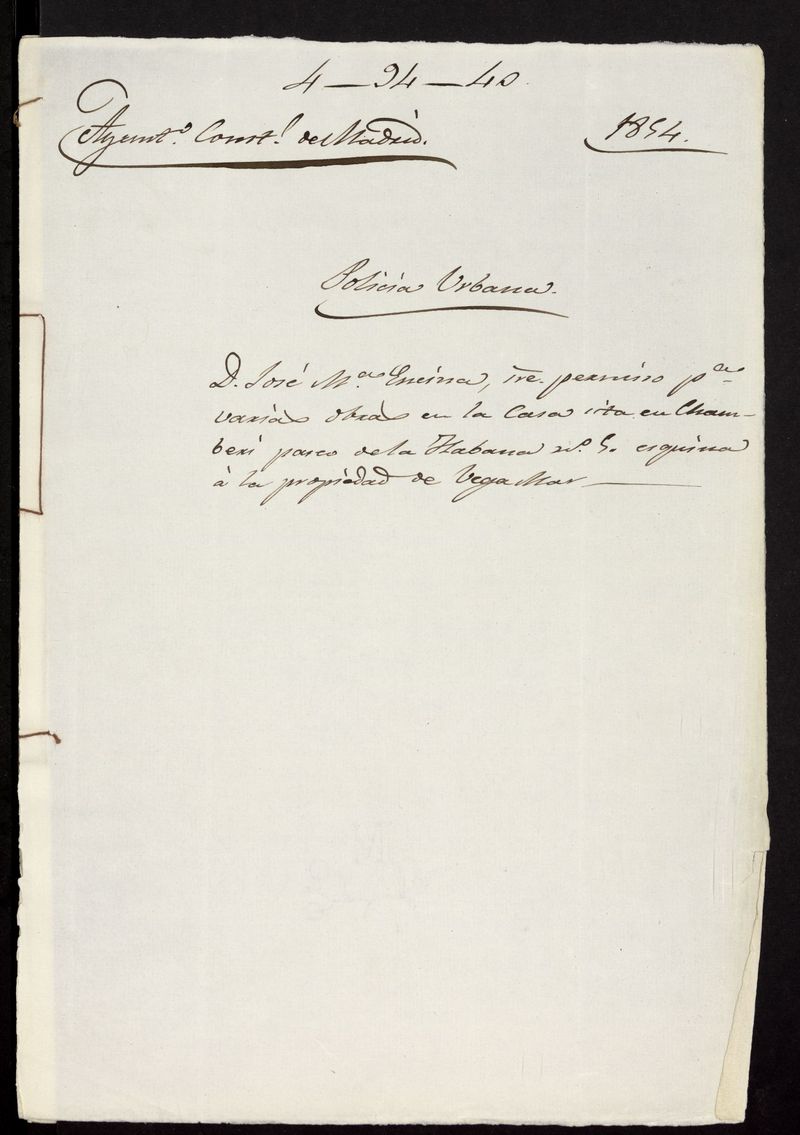 4 — 94 — 40.
Ayunt.º Const.l de Madrid.
1854.
Policía Urbana.
D. José M.a Encina, sre. permiso p.a
varias obras en la Casa sita en Cham-
berí paseo de la Habana n.º 5. esquina
á la propiedad de Vega Mar